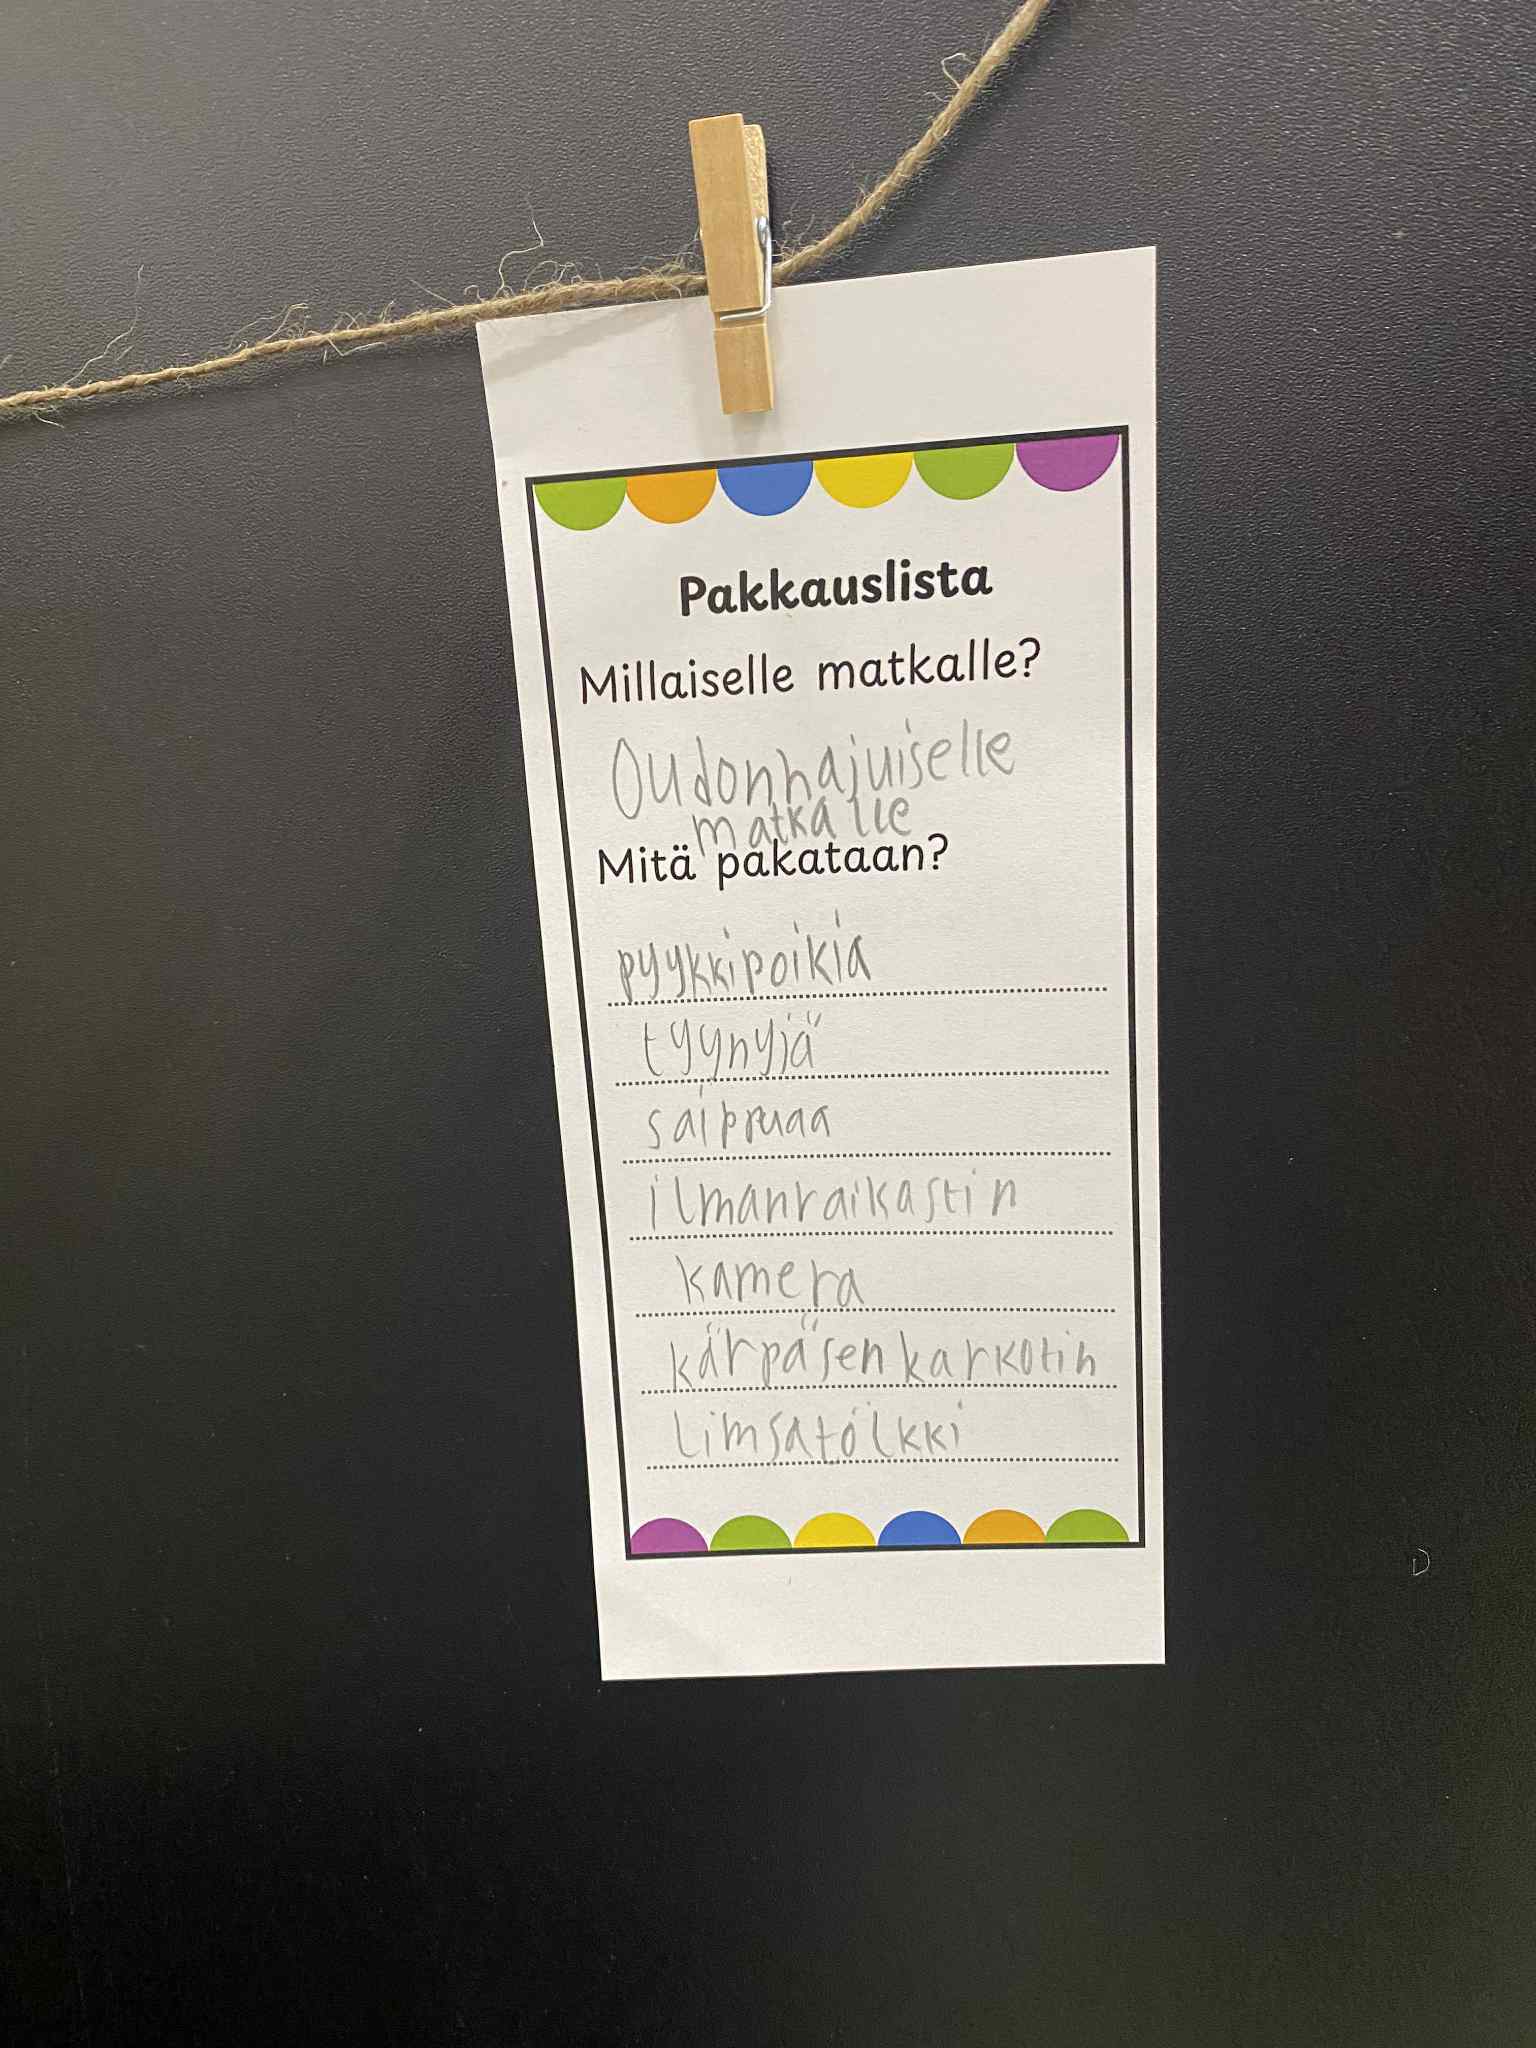 Pakkauslista
Millaiselle matkalle?
Oudonhajuiselle
matkalle
Mitä pakataan?
pyykkipoikia
tyynyjä
saipruaa
ilmanraikastin
kamera
kärpäsenkarkotin
Limsatölkki